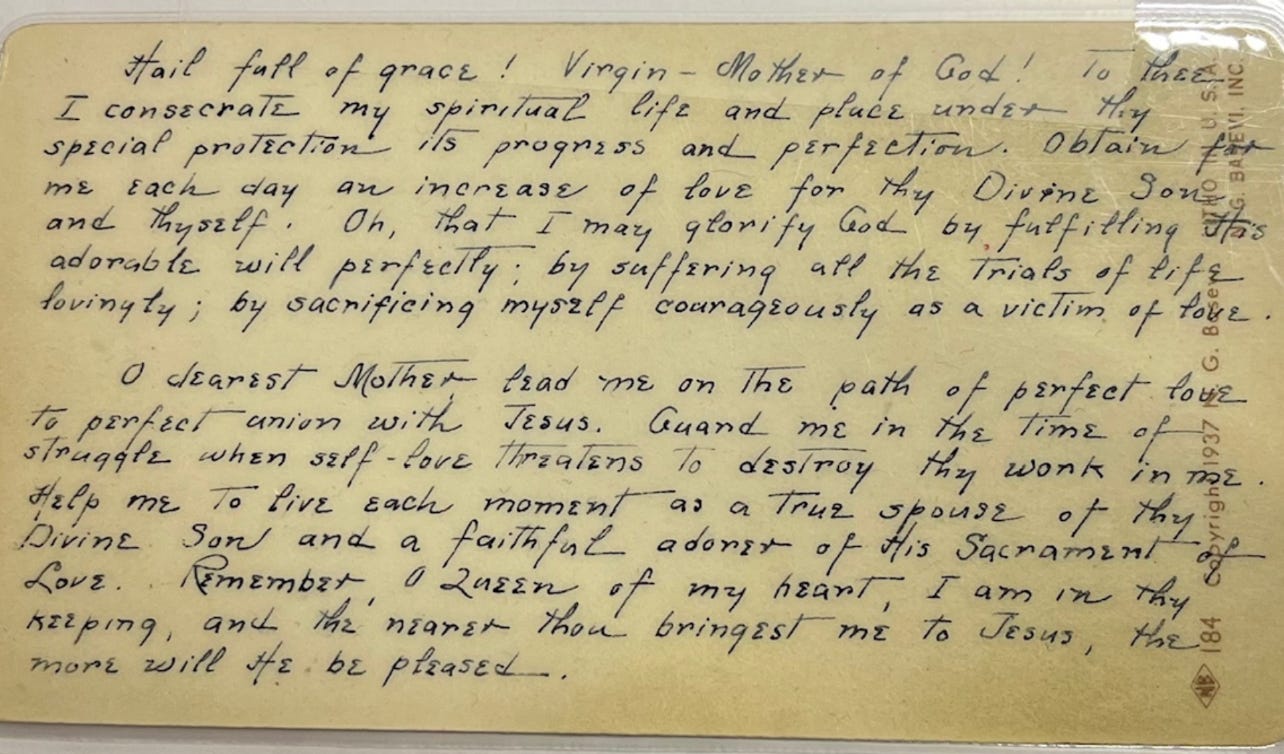 Hail full of grace! Virgin - Mother of God! To thee
I consecrate my spiritual life and place under thy
special protection its progress and perfection. Obtain for
me each day an increase of love for thy Divine Son
and thyself. Oh, that I may glorify God by fulfilling His
adorable will perfectly; by suffering all the trials of life
lovingly; by sacrificing myself courageously as a victim of love.
O dearest Mother lead me on the path of perfect love
to perfect union with Jesus. Guard me in the time of
struggle when self-love threatens to destroy thy work in me.
Help me to live each moment as a true spouse of thy
Divine Son and a faithful adorer of His Sacrament of
Love. Remember, O Queen of my heart, I am in thy
keeping, and the nearer thou bringest me to Jesus, the
more will He be pleased.
184 Copyright 1937 N. G. Basevi LITHO IN U.S.A.
N.G. BASEVI, INC.
NB